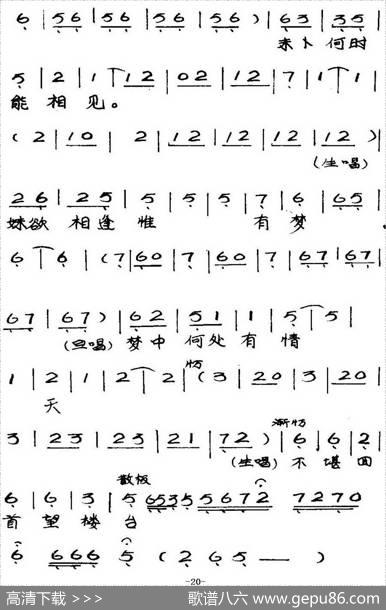 6 | 56 | 56 | 56 | 56 | 56 ) | 63 | 35 |
未卜何时
5 | 2 | 1 | 12 | 02 | 12 | 7 | 1 | 1
能相见。
( 2 | 10 | 2 | 12 | 12 | 12 | 12 ) |
(生唱)
26 | 25 | 5 | 5 | 5 | 7 | 6 | 65 |
妹欲相逢惟有梦.
6 | 6 | ( 7 | 60 | 7 | 60 | 7 | 67 | 67 |
67 | 67 ) | 62 | 51 | 1 | 5 | 5 |
(旦唱) 梦中何处有情
1 | 2 | 1 | 2 | 2 | ( 3 | 20 | 3 | 20 |
天
3 | 23 | 23 | 21 | 72 ) | 6 | 6 | 2 |
(生唱) 不堪回
散板
6 | 6 | 3 | 5 6535 5672 7270
首望楼台
6 666 5 ( 2 6 5 — — )
-20-
高清下载 >>> 歌谱八六 www.gepu86.com